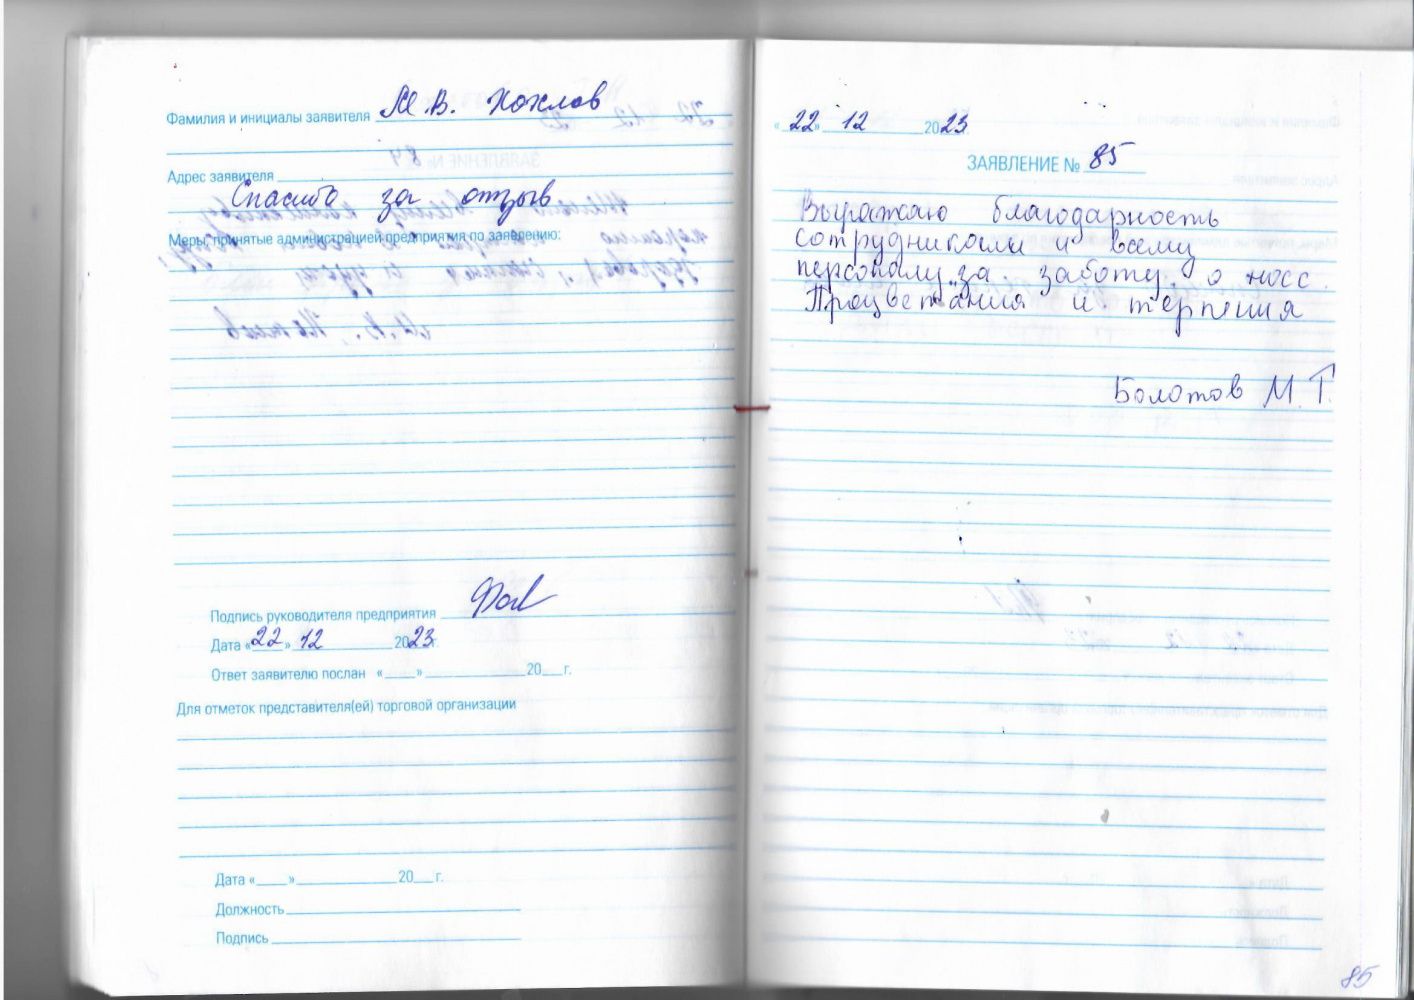 Фамилия и инициалы заявителя М.В. Хохлов
Адрес заявителя
Спасибо за отзыв
Меры, принятые администрацией предприятия по заявлению:
Подпись руководителя предприятия
Дата «22» 12 2023г.
Ответ заявителю послан «___» 20__г.
Для отметок представителя(ей) торговой организации
Дата «___» 20__г.
Должность
Подпись
«22» 12 2023
ЗАЯВЛЕНИЕ № 85
Выражаю благодарность
сотрудникам и всему
персоналу за заботу о насс.
Процветания и терпения
Болотов М.Т.
85